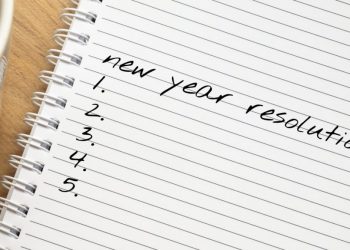 new year resolutio
1.
2.
3.
4.
5.